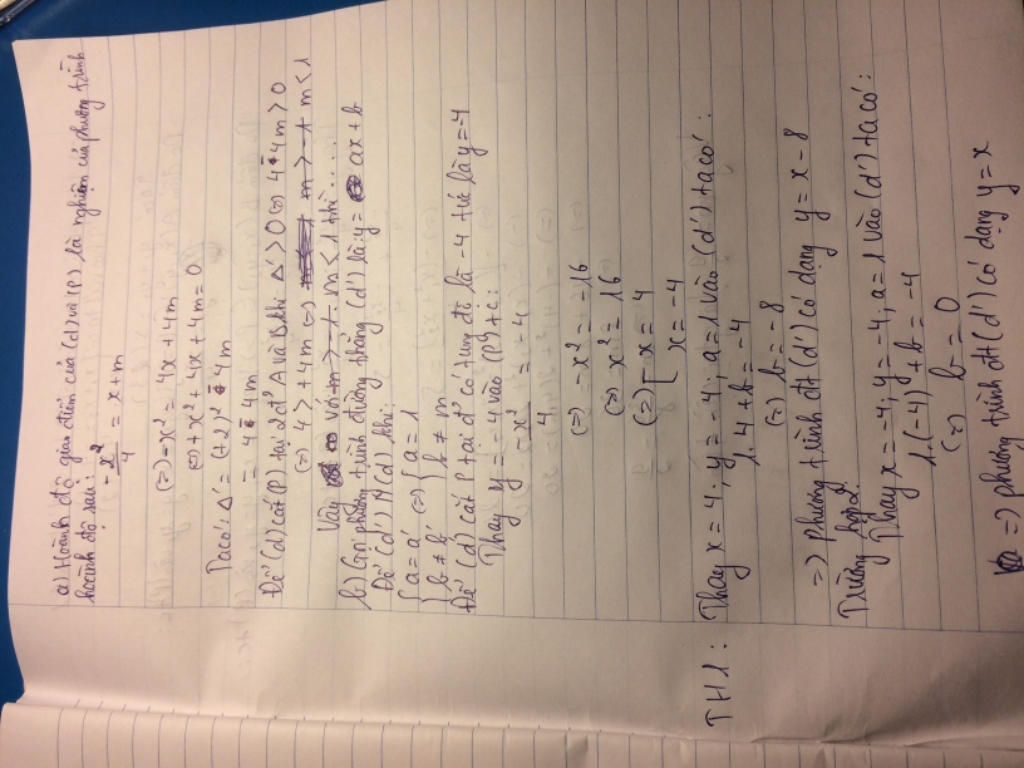 a) Hoành độ giao điểm của (d) và (P) là nghiệm của phương trình
hoành độ sau:
- x²/4 = x + m
(=) -x² = 4x + 4m
(=) + x² + 4x + 4m = 0
Ta có: Δ' = (+2)² - 4m
= 4 - 4m
Để (d) cắt (P) tại 2 đ' A và B khi Δ' > 0 (=) 4 - 4m > 0
(=) 4 > + 4m (=) m > - 1 m < 1
Vậy với m > - 1 m < 1 thì.....
b) Gọi phương trình đường thẳng (d') là: y = ax + b
Để (d') // (d) khi:
{ a = a' (=) { a = 1
{ b ≠ b' { b ≠ m
Để (d) cắt P tại đ' có tung độ là -4 tức là y = 4
Thay y = -4 vào (P) ta có:
- x²/4 = -4
(=) -x² = -16
(=) x² = 16
(=) [ x = 4
[ x = -4
TH1: Thay x = 4; y = -4; a = 1 vào (d') ta có:
1.4 + b = -4
(=) b = -8
=) phương trình đt (d') có dạng y = x - 8
Trường hợp 2:
Thay x = -4; y = -4; a = 1 vào (d') ta có:
1.(-4) + b = -4
(=) b = 0
=) phương trình đt (d') có dạng y = x